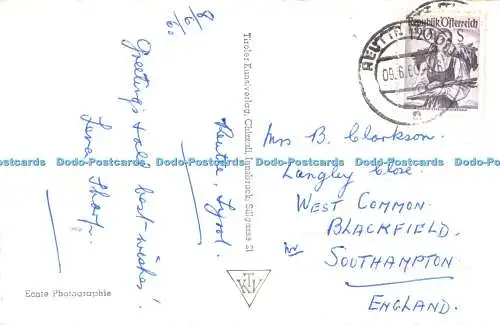 8/6/60
Greetings & all best-wishes!
Lena Sharp.
Reutte, Tyrol.
Tiroler Kunstverlag, Chizzali, Innsbruck, Sillgasse 21
Echte Photographie
TKV
REUTTE
09.6.60
Republik Österreich
S
Mrs B. Clarkson.
Langley Close.
WEST COMMON.
BLACKFIELD.
nr
SOUTHAMPTON
ENGLAND.
Dodo-Postcards Dodo-Postcards Dodo-Postcards Dodo-Postcards Dodo-Postcards